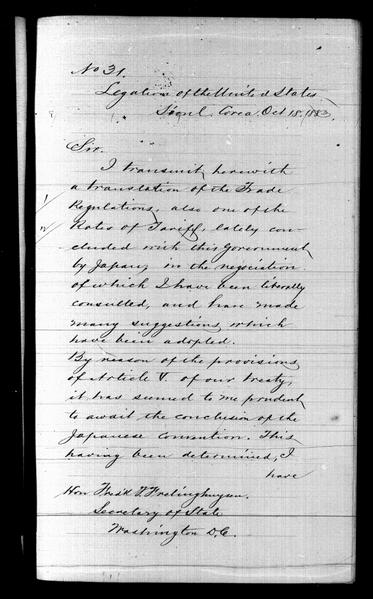 No 31.
Legation of the United States
Söoul, Corea, Oct 18, 1883.
Sir.
I transmit herewith
a translation of the Trade
1/ Regulations, also one of the
2/ Rates of Tariff, lately con-
cluded with this Government
by Japan; in the negociation
of which I have been literally
consulted, and have made
many suggestions which
have been adopted.
By reason of the provisions
of Article V. of our treaty,
it has seemed to me prudent
to await the conclusion of the
Japanese Convention. This
having been determined, I
have
Hon Fredk T. Frelinghuysen
Secretary of State
Washington D.C.